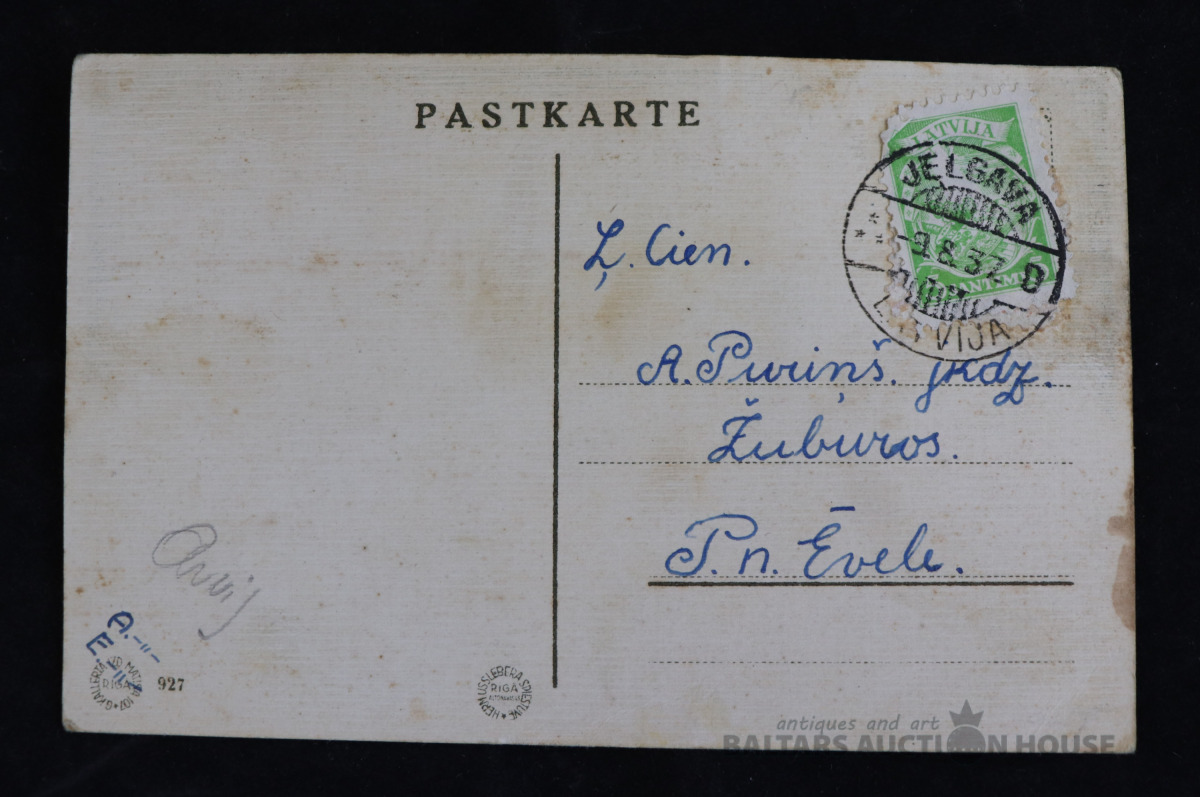 PASTKARTE
LATVIJA
JELGAVA
-9.8.37. D
LATVIJA
Ļ. Cien.
A. Puriņš. jkdz.
Žuburos.
P. n. Ēvele.
A.-"-
E.
RIGA
927
RIGA
antiques and art
BALTARS AUCTION HOUSE